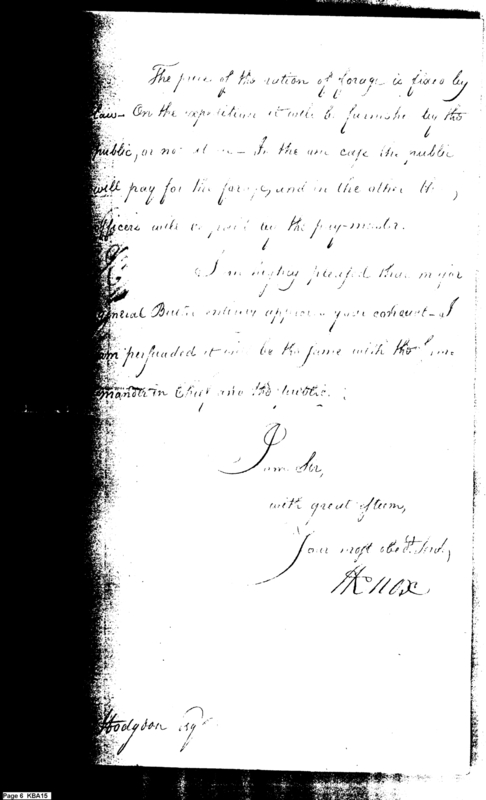 The price of the ration of forage is fixed by
law – On the expedition it will be furnished by the
public, or not at all – In the one case the public
will pay for the forage, and in the other the
officers will be paid by the pay-master.
I am highly pleased that major
general Butler entirely approves your conduct – I
am persuaded it will be the same with the Com-
mander in Chief and the public.
I am Sir,
with great esteem,
Your most obed.t Serv.t
HKnox
Hodgdon Esq
Page 6 KBA15